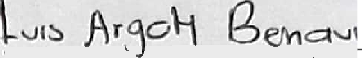 Luis Argoty Benavi